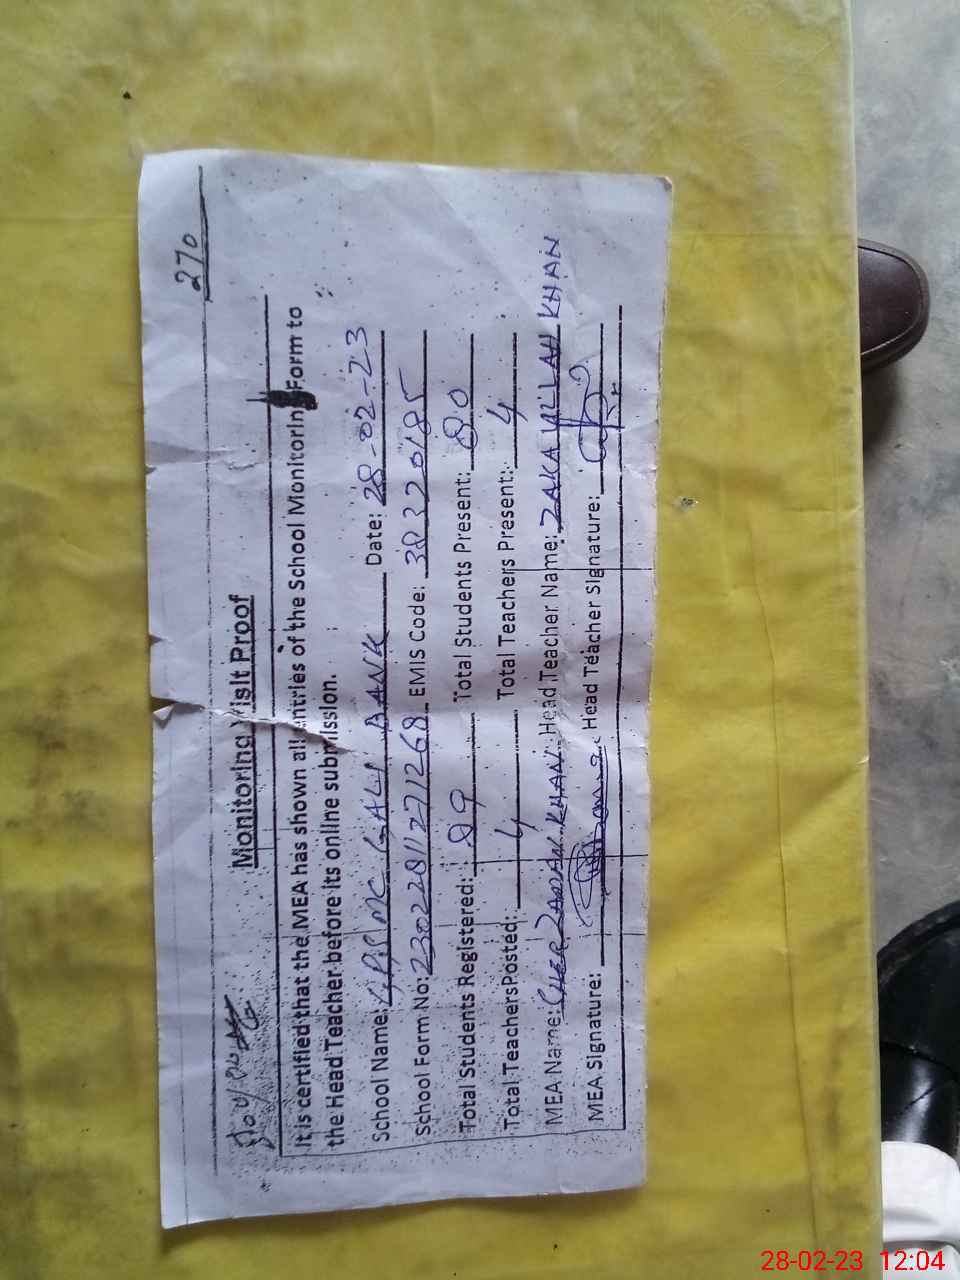 270
Monitoring Visit Proof
It is certified that the MEA has shown all entries of the School Monitoring Form to
the Head Teacher before its online submission.
School Name: GPS MC GALI BANK Date: 28-02-23
School Form No: 230228112711268 EMIS Code: 38320185
Total Students Registered: 89 Total Students Present: 80
Total TeachersPosted: 4 Total Teachers Present: 4
MEA Name: SHER ZAMAN KHAN Head Teacher Name: ZAKA ULLAH KHAN
MEA Signature: Head Teacher Signature:
28-02-23 12:04